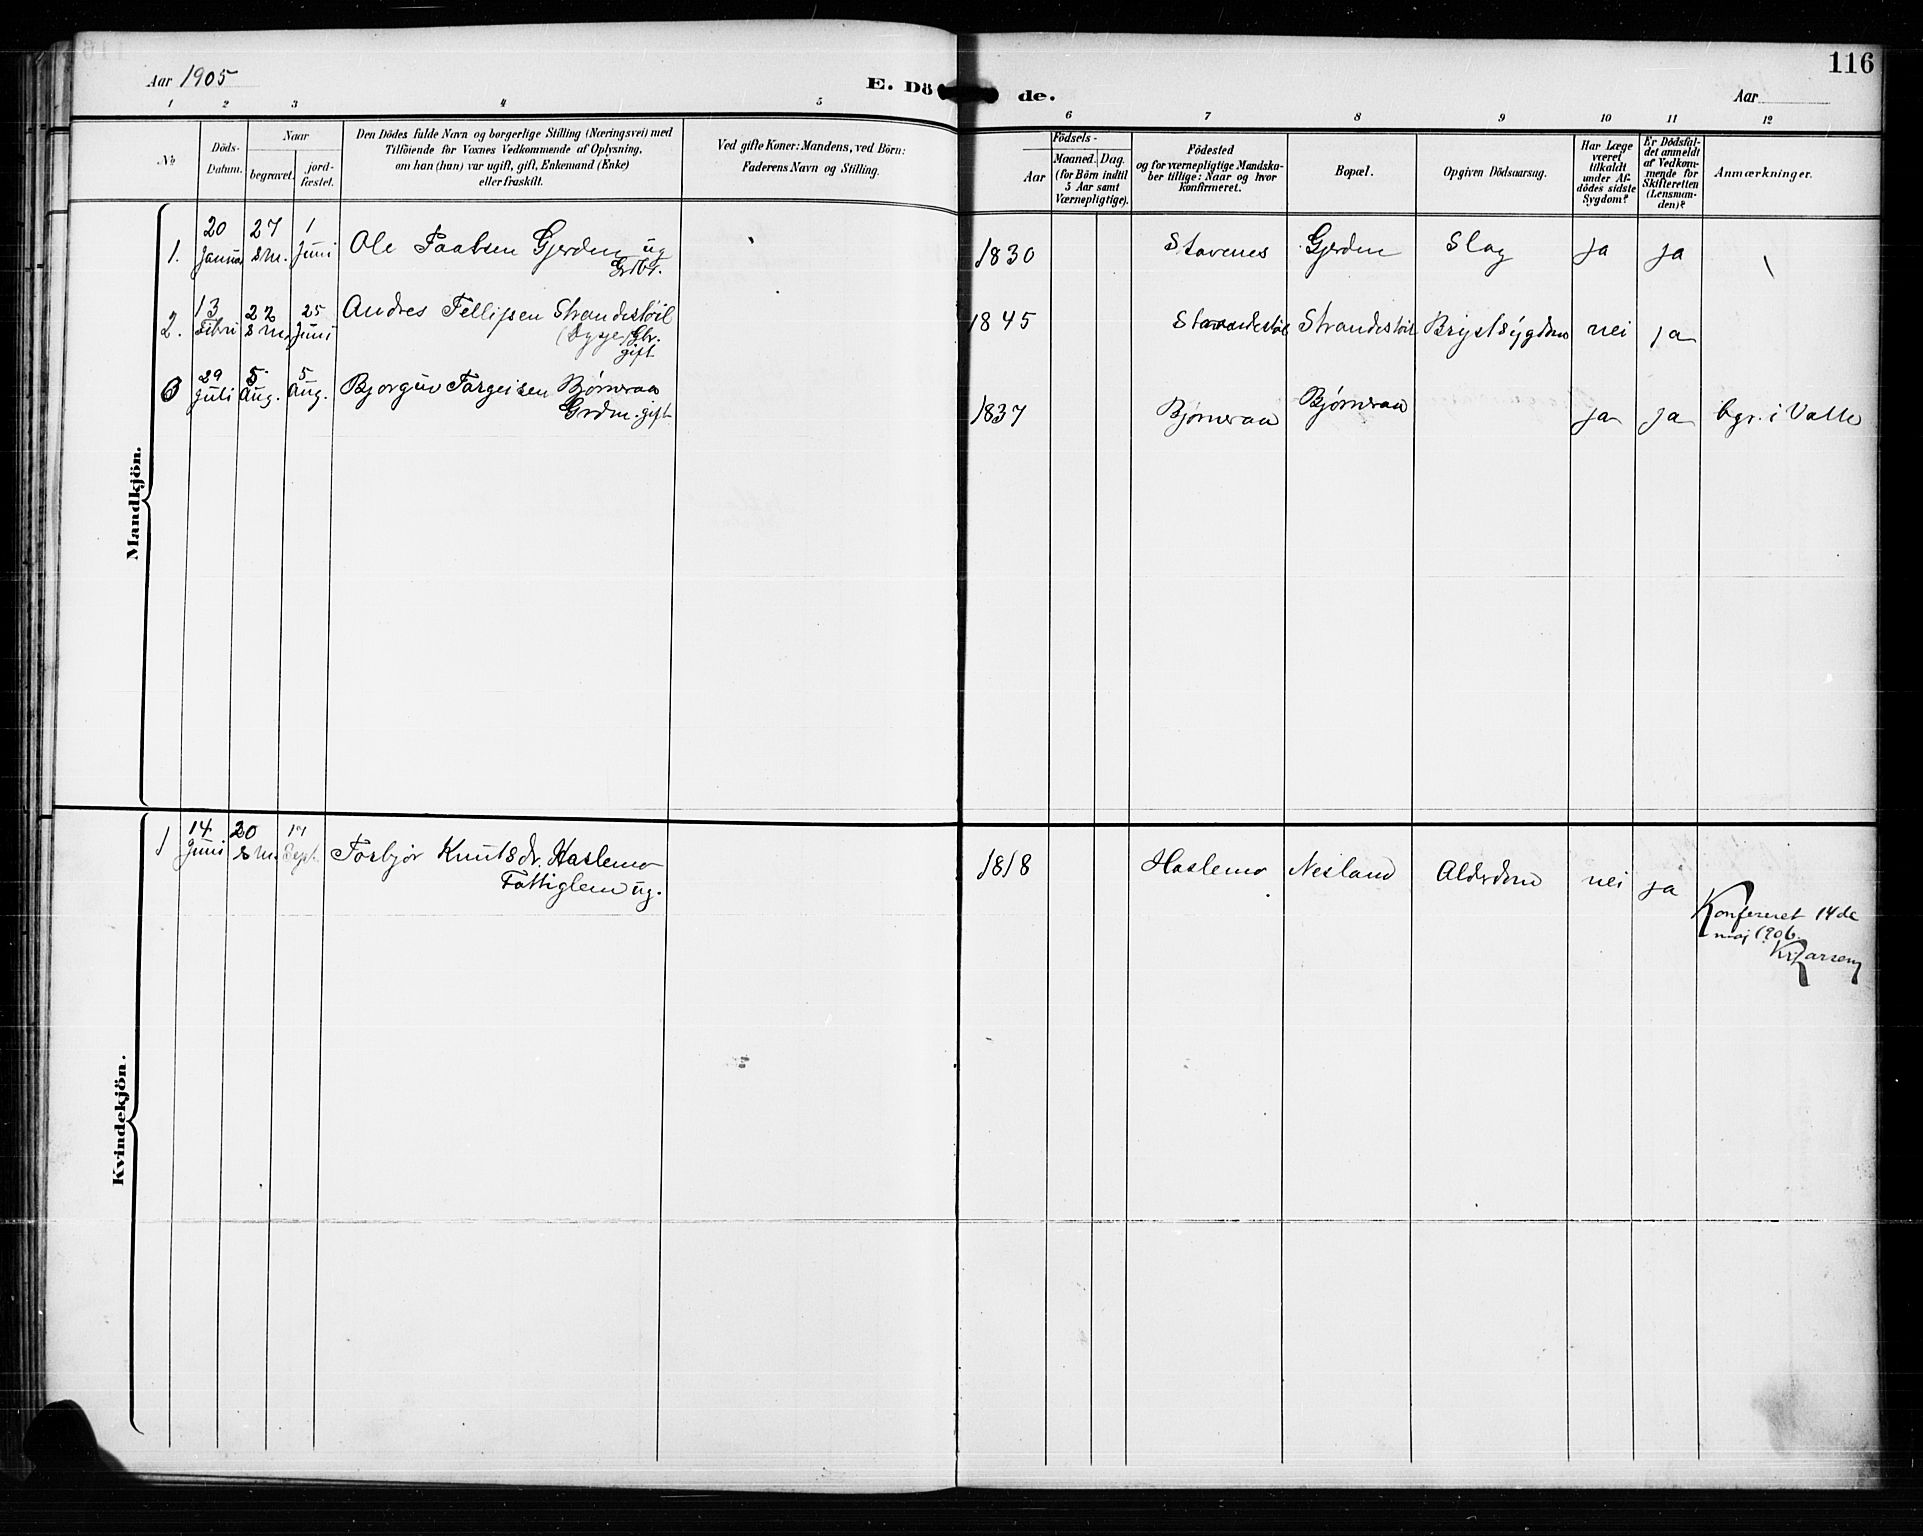 116
Aar 1905
E. Dö de.
Aar
1 2 3 4 5 6 7 8 9 10 11 12
No
Döds-
Datum.
Naar
begravet.
jord-
fæstet.
Den Dödes fulde Navn og borgerlige Stilling (Næringsvei) med
Tilföiende for Voxnes Vedkommende af Oplysning,
om han (hun) var ugift, gift, Enkemand (Enke)
eller fraskilt.
Ved gifte Koner: Mandens, ved Börn:
Faderens Navn og Stilling.
Födsels-
Aar
Maaned. Dag.
(for Börn indtil
5 Aar samt
Værnepligtige).
Födested
og for værnepligtige Mandska-
ber tillige: Naar og hvor
konfirmeret.
Bopæl.
Opgiven Dödsaarsag.
Har Læge
været
tilkaldt
under Af-
dödes sidste
Sygdom?
Er Dödsfal-
det anmeldt
af Vedkom-
mende for
Skifteretten
(Lensman-
den)?
Anmærkninger.
Mandkjön.
1. 20 Januar 27 s m. 1 Juni Ole Paalsen Gjerden ug
Grdbr.
1830 Stavenes Gjerden Slag ja ja
2. 13 Febru 22 s m. 25 Juni Andres Fellipsen Strandestöil
(Bygje) Gbr.
gift
1845 Strandestöil Brystsygdom nei ja
29 Juli 5 Aug. 5 Aug. Bjorguv Targeisen Bjørneraa
Grdm. gift
1837 Bjørneraa Bjørneraa ja ja bgr. i Valle
Kvindekjön.
1 14 Juni 20 s m. Sept. Torbjør Knutsdr. Haslemo
Fattiglem ug.
1818 Haslemo Nesland Alderdom nei ja
Konfereret 14de
maj 1906.
Kr Larsen